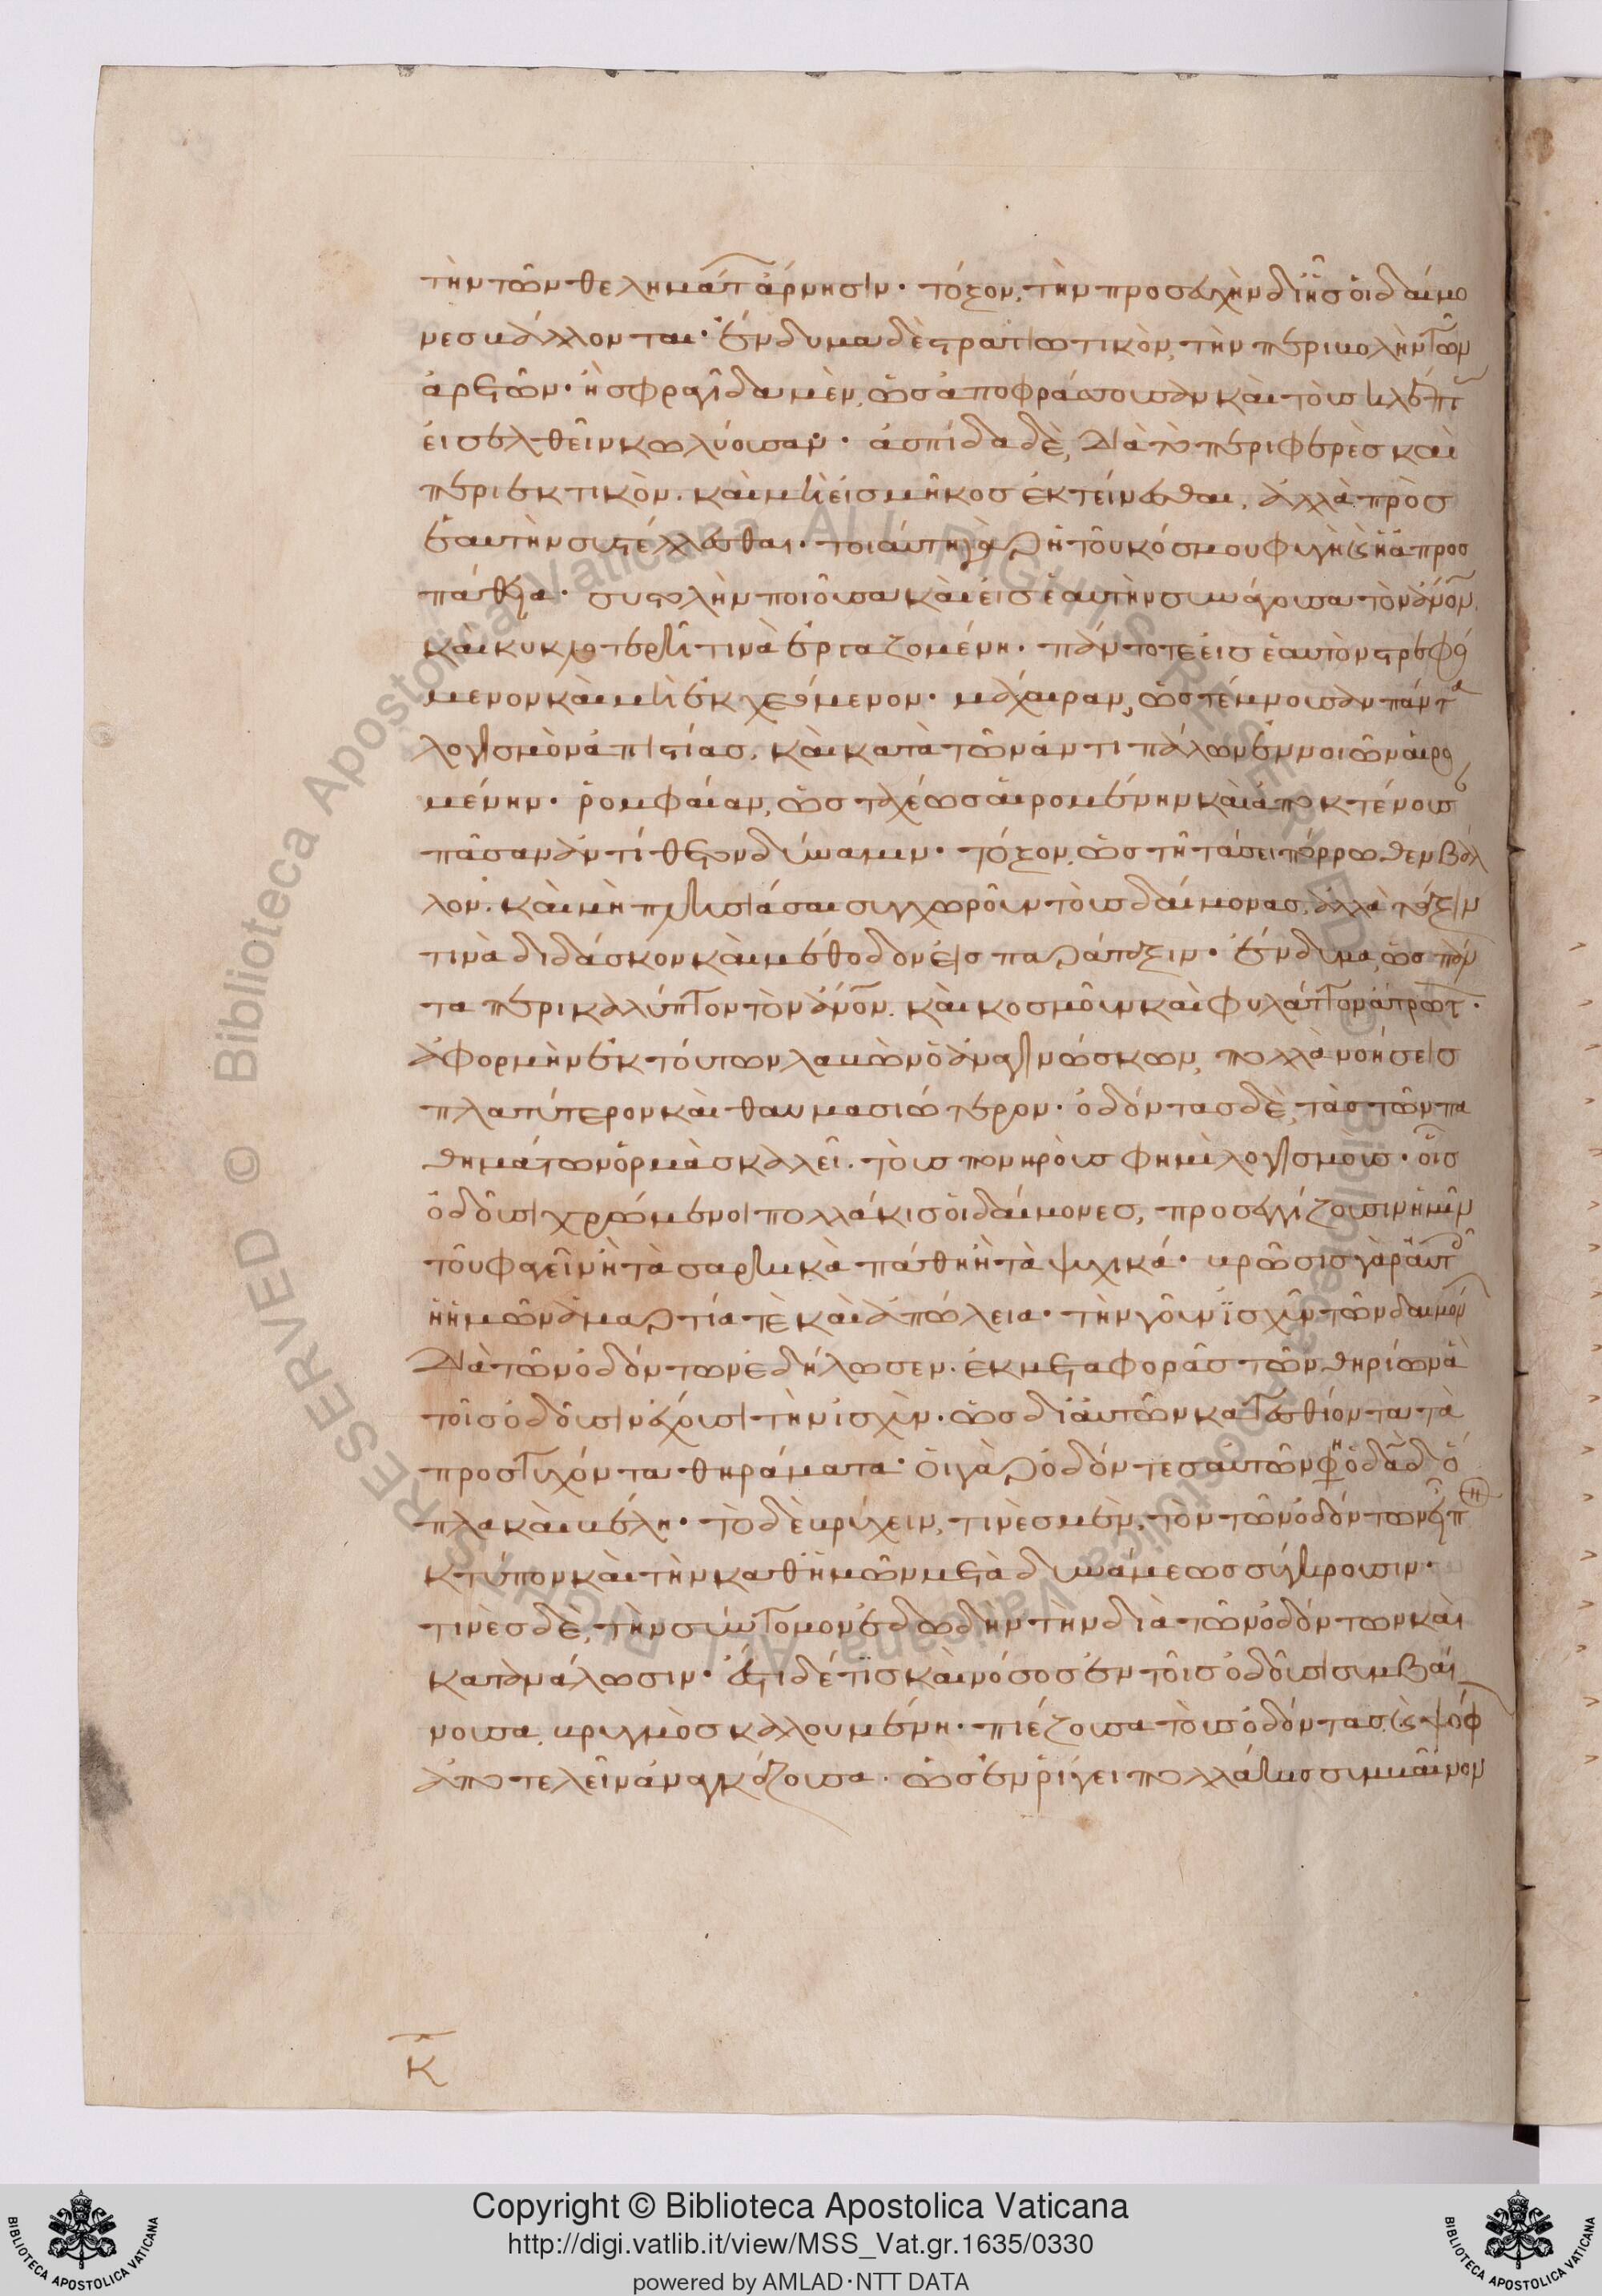 τὴν τῶν θελημάτ ἄρνησιν· τόξον, τὴν προσευχὴν δι ἧς οἱ δαίμο
νες βάλλονται· ἔνδυμα δὲ στρατιωτικὸν, τὴν περιβολὴν τῶν
ἀρετῶν· ἢ σφραγῖδα μὲν, ὡς ἀποφράττουσαν καὶ τοὺς
εἰσελθεῖν κωλύουσαν· ἀσπίδα δὲ, διὰ τὸ περιφερὲς καὶ
περιεκτικὸν. καὶ μὴ εἰς μῆκος ἐκτείνεσθαι, ἀλλὰ πρὸς
ἑαυτὴν συστέλλεσθαι· τοιαύτη γὰρ ἡ τοῦ κόσμου φυγὴ καὶ ἡ ἀπροσ
πάθεια· συστολὴν ποιοῦσα καὶ εἰς ἑαυτὴν συνάγουσα τὸν ἄνον,
καὶ κυκλοτερῆ τινὰ ἐργαζομένη· πάντοτε εἰς ἑαυτὸν στρεφό
μενον καὶ μὴ ἐκχεόμενον· μάχαιραν, ὡς τέμνουσαν πάντα
λογισμὸν ἀπιστίας, καὶ κατὰ τῶν ἀντιπάλων ἐννοιῶν αἰρο
μένην· ῥομφαίαν, ὡς ταχέως αἰρομένην καὶ ἀποκτένουσ
πᾶσαν ἀντίθετον δύναμιν· τόξον, ὡς τῇ τάσει πόρρωθεν βάλ
λον· καὶ μὴ πλησιάσαι συγχωροῦν τοὺς δαίμονας, ἀλλὰ τάξιν
τινὰ διδάσκον καὶ μέθοδον εἰς παράταξιν· ἔνδυμα, ὡς πάν
τα περικαλύπτον τὸν ἄνον. καὶ κοσμοῦν καὶ φυλάττον ἄτρωτ·
ἀφορμὴν ἐκ τούτων λαβὼν ὁ ἀναγινώσκων, πολλὰ νοήσεις
πλατύτερον καὶ θαυμασιώτερον· ὀδόντας δὲ, τὰς τῶν πα
θημάτων ὁρμὰς καλεῖ. τοὺς πονηρούς φημὶ λογισμούς· οἷς
ὀδοῦσι χρώμενοι πολλάκις οἱ δαίμονες, προσεγγίζουσιν ἡμῖν
τοῦ φαγεῖν ἢ τὰ σαρκικὰ πάθη ἢ τὰ ψυχικά· βρῶσις γὰρ αὐτ
ἡ ἡμῶν ἁμαρτία τὲ καὶ ἀπώλεια· τὴν γοῦν ἰσχὺν τῶν δαιμόν
διὰ τῶν ὀδόντων ἐδήλωσεν. ἐκ μεταφορᾶς τῶν θηρίων ἃ
τοῖς ὀδοῦσιν ἔχουσι τὴν ἰσχὺν. ὡς δι αὐτῶν κατεσθίοντα τὰ
προστυχόντα θηράματα· οἱ γὰρ ὀδόντες αὐτῶν φη ὁ δαδ ὅ
πλα καὶ βέλη· τὸ δὲ βρύχειν, τινὲς μὲν, τὸν τῶν ὀδόντων
κτύπον καὶ τὴν καθ ἡμῶν μετὰ δυνάμεως σύγκρουσιν·
τινὲς δὲ, τὴν σύντομον ἐδωδὴν τὴν διὰ τῶν ὀδόντων καὶ
κατανάλωσιν· ἔστι δέ τις καὶ νόσος ἐν τοῖς ὀδοῦσι συμβαί
νουσα, βρυγμὸς καλουμένη· πιέζουσα τοὺς ὀδόντας καὶ ψόφ
ἀποτελεῖν ἀναγκάζουσα. ὡς ἐν ῥίγει πολλάκις συμβαῖνον
κ
Copyright © Biblioteca Apostolica Vaticana
http://digi.vatlib.it/view/MSS_Vat.gr.1635/0330
powered by AMLAD·NTT DATA